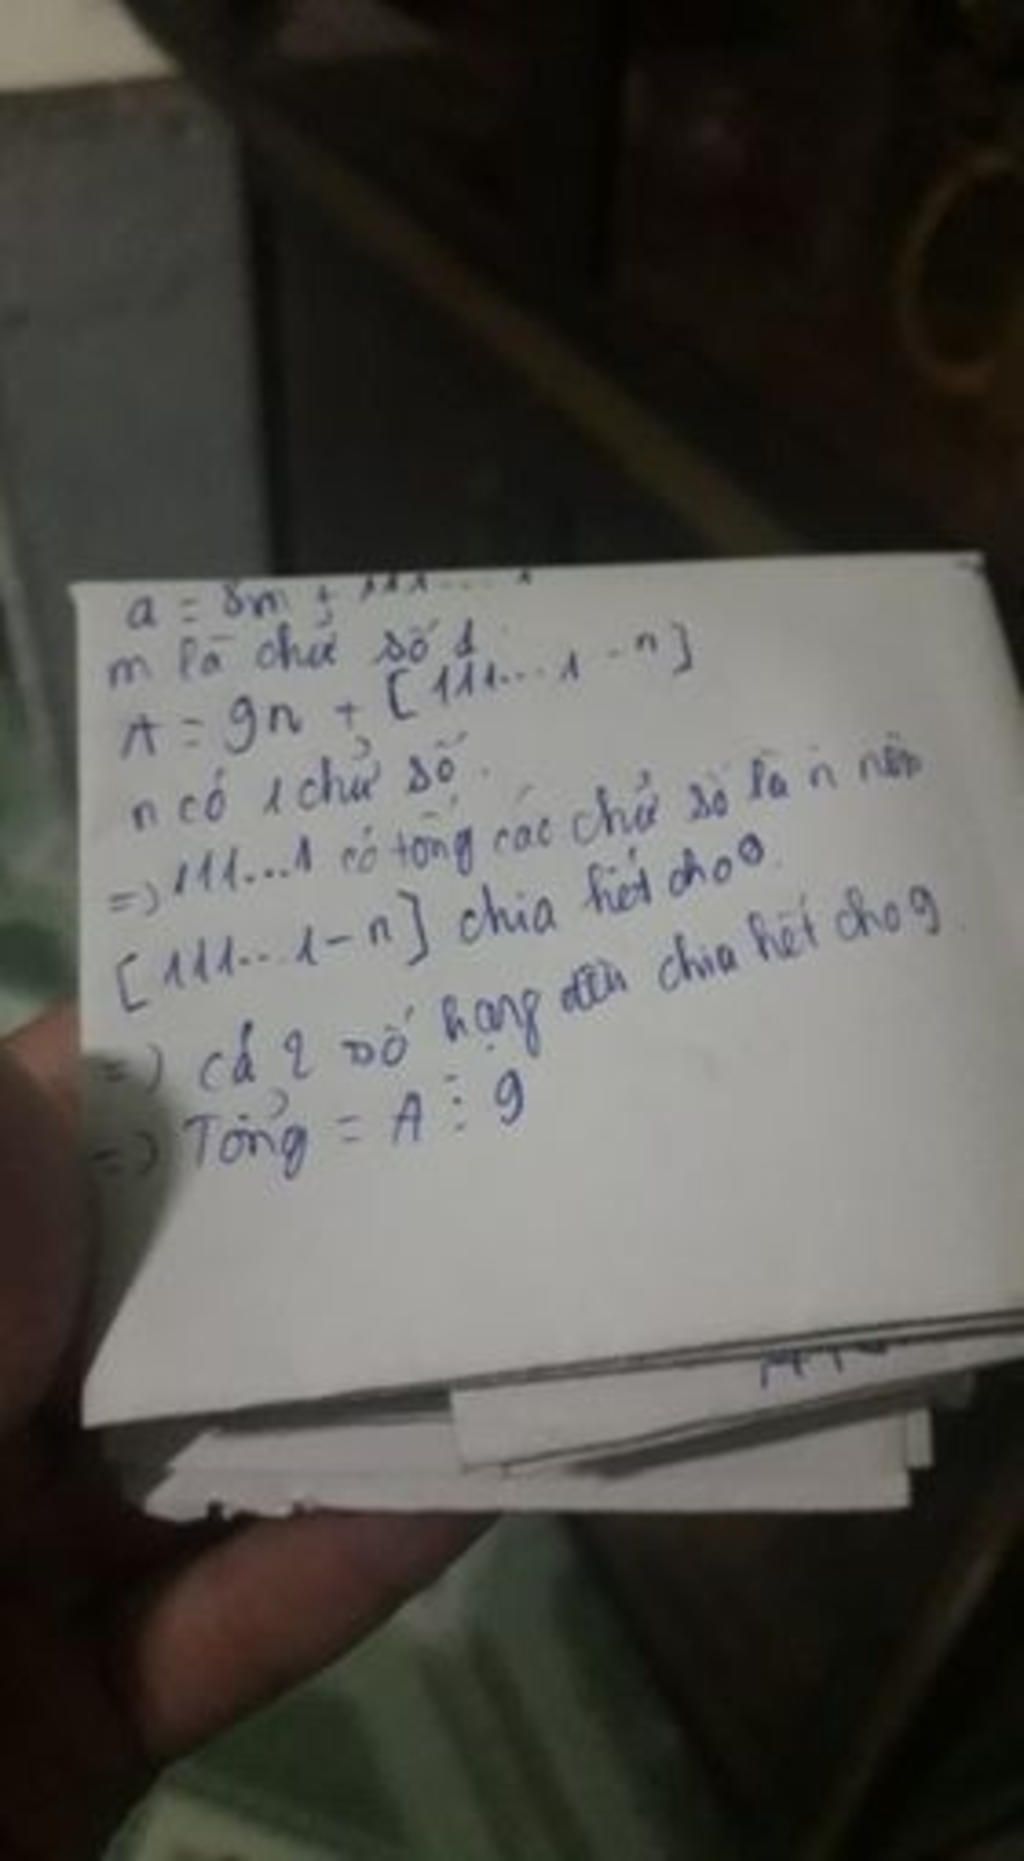 a = 8m + 111...1
m là chữ số 1
A = 9n + [111...1 - n]
n có 1 chữ số.
=> 111...1 có tổng các chữ số là n nên
[111...1 - n] chia hết cho 9.
=> cả 2 số hạng đều chia hết cho 9.
=> Tổng = A ⋮ 9